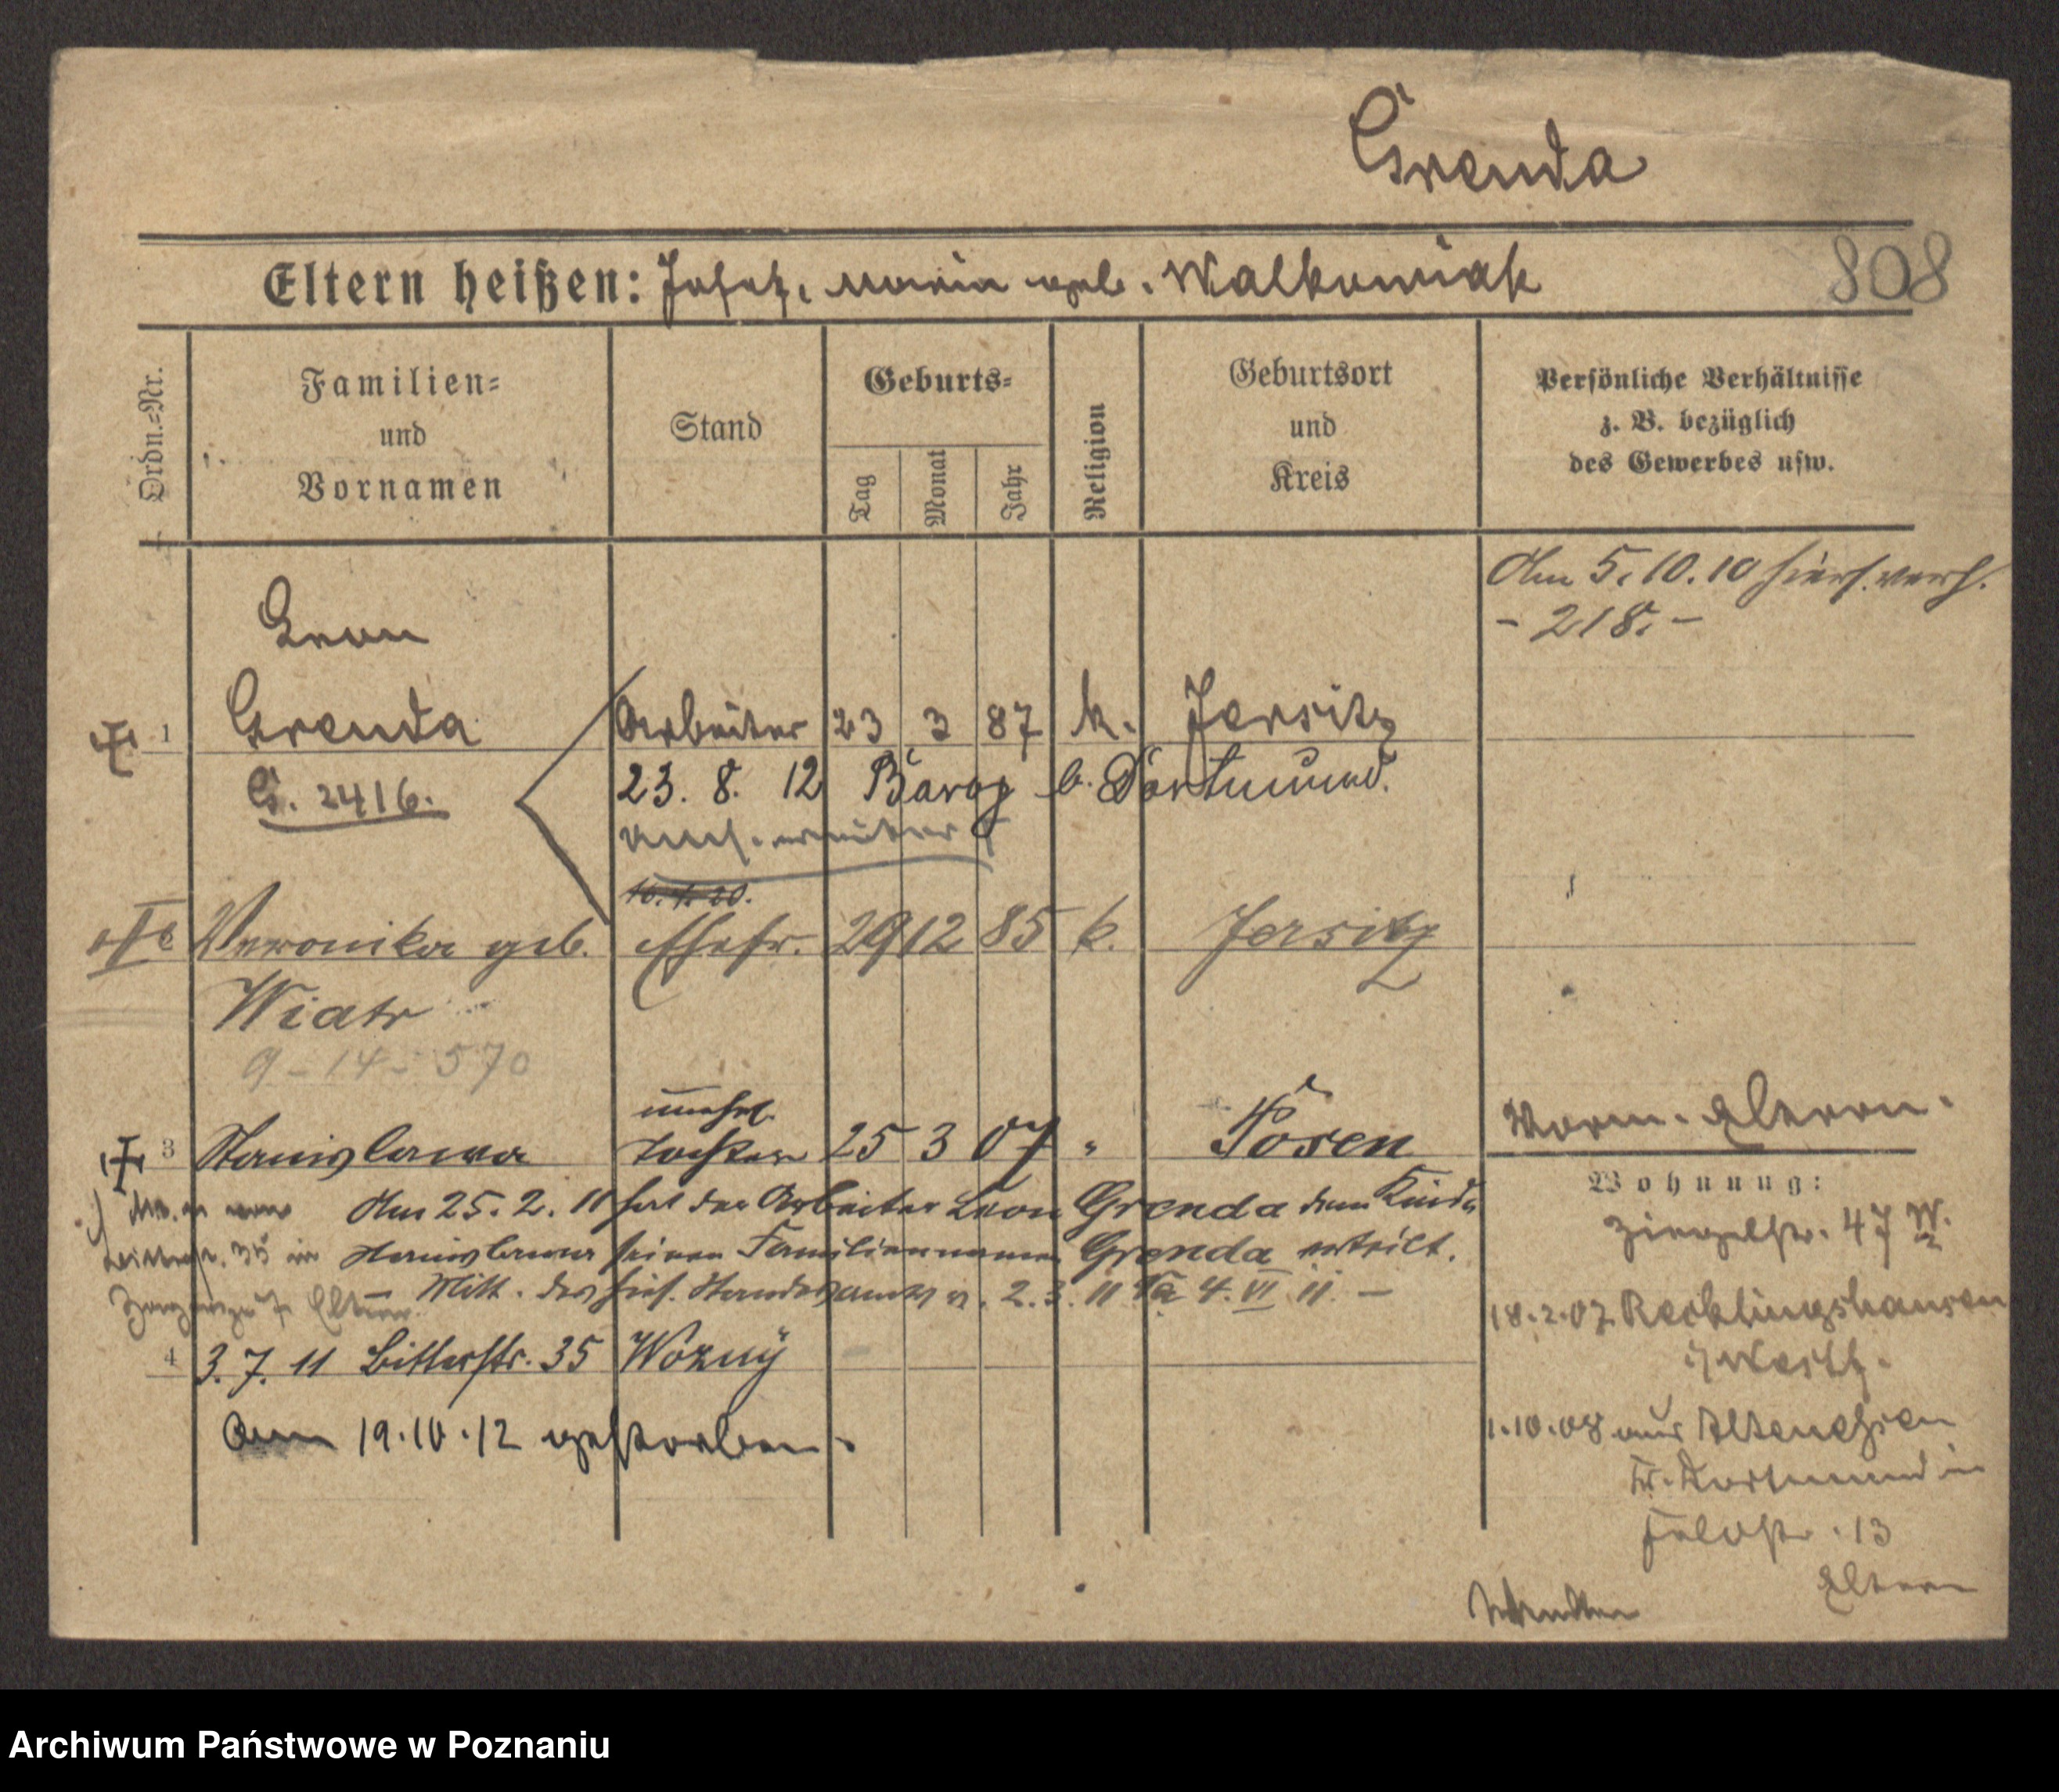 Grenda
Eltern heißen: Josef, Maria geb. Walkowiak
808
Ordn.=Nr.
Familien= und Vornamen
Stand
Geburts=
Tag
Monat
Jahr
Religion
Geburtsort und Kreis
Persönliche Verhältnisse z. B. bezüglich des Gewerbes usw.
Am 5.10.10 hiers. verh.
- 218. -
Leon
1 Grenda Arbeiter 23 3 87 k. Jersitz
G. 2416. 23. 8. 12 Barop b. Dortmund.
10. 1. 20.
Veronika geb. Ehefr. 29 12 85 k. Jersitz
Wiatr
9-14-570
unehel.
3 Stanislawa Tochter 25 3 07 " Posen
Am 25. 2. 11 hat der Arbeiter Leon Grenda dem Kinde
Stanislawa seinen Familiennamen Grenda erteilt.
- Mitt. des hies. Standesamts v. 2. 3. 11 4. VI 11. -
4 3. 7. 11 Bitterstr. 35 Wozny
Am 19.10.12 gestorben.
Vorm. Eltern.
Wohnung:
Ziegelstr. 47 W.
18.2.07 Recklinghausen
i/Westf.
1.10.08 aus Altenessen
Kr. Dortmund in
Feldstr. 13
Eltern
Archiwum Państwowe w Poznaniu